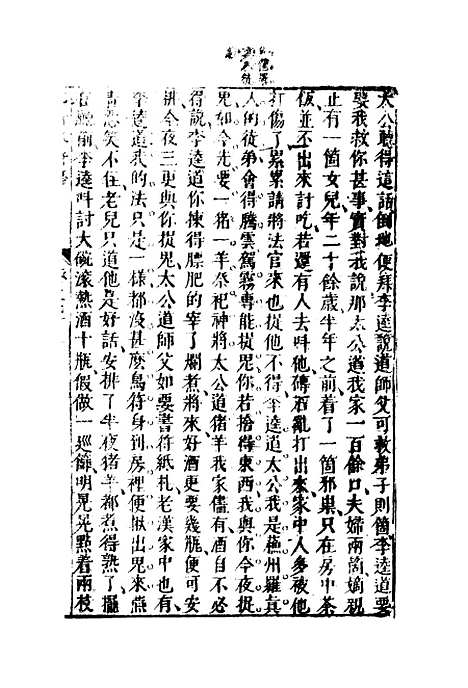 太公聽得這話倒地便拜李逵說道師父可救弟子則箇李逵道要
娶我救你甚事實對我說那太公道我家一百餘口夫婦兩箇嫡親
止有一箇女兒年二十餘歲半年之前着了一箇邪祟只在房中茶
飯並不出來討吃若還有人去叫他磚石亂打出來家中人多被他
打傷了累累請將法官來也捉他不得李逵道太公我是薊州羅真
人的徒弟會得騰雲駕霧專能捉鬼你若捨得東西我與你今夜捉
鬼如今先要一猪一羊祭祀神將太公道猪羊我家儘有酒自不必
得說李逵道你揀得膘肥的宰了爛煮將來好酒更要幾瓶便可安
排今夜三更與你捉鬼太公道師父如要書符紙札老漢家中也有
李逵道我的法只是一樣都沒甚麼鳥符身到房裡便揪出鬼來燕
青忍笑不住老兒只道他是好話安排了半夜猪羊都煮得熟了擺
在廳前李逵叫討大碗滚熱酒十瓶假做一巡篩明晃晃點着兩枝